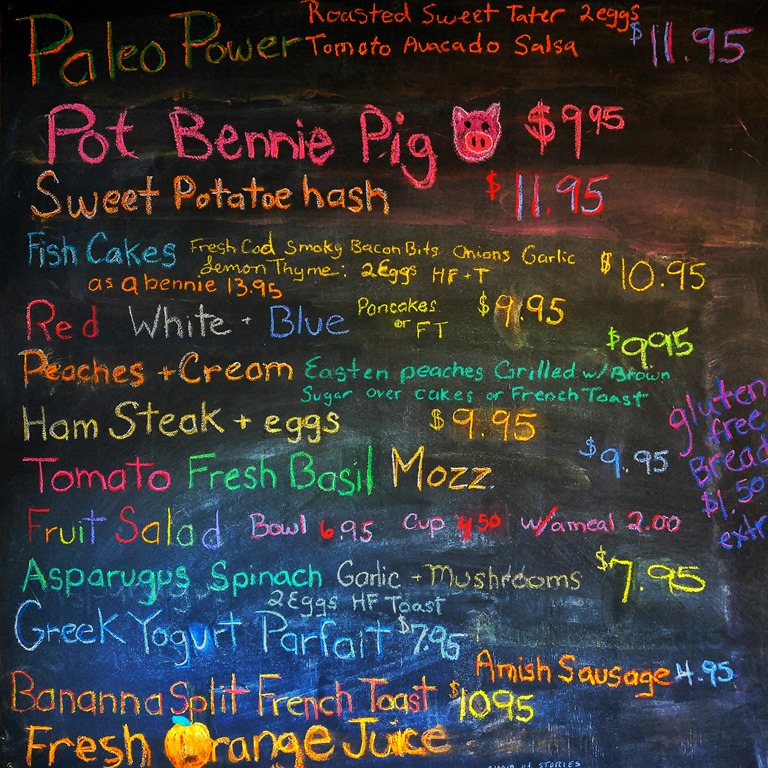 Roasted Sweet Tater 2eggs
Paleo Power Tomato Avacado Salsa $11.95
Pot Bennie Pig $9.95
Sweet Potatoe hash $11.95
Fish Cakes Fresh Cod Smoky Bacon Bits Onions Garlic
Lemon Thyme: 2Eggs HF+T $10.95
as a bennie 13.95
Red White + Blue Pancakes or FT $9.95
Peaches + Cream Easten peaches Grilled w/ Brown $9.95
Sugar over cakes or French Toast
Ham Steak + eggs $9.95
Tomato Fresh Basil Mozz. $9.95
gluten
free
Bread
$1.50
extr
Fruit Salad Bowl 6.95 Cup 4.50 w/a meal 2.00
Asparugus Spinach Garlic + Mushrooms $7.95
2Eggs HF Toast
Greek Yogurt Parfait $7.95
Amish Sausage 4.95
Bananna Split French Toast $1095
Fresh Orange Juice
OF STORIES